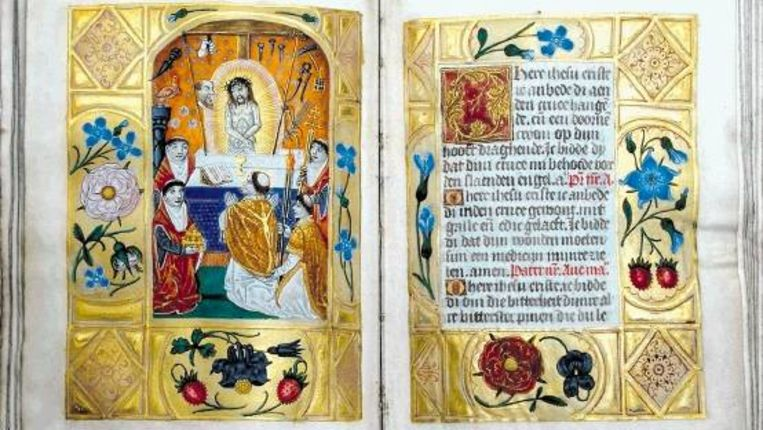 O here ihesu criste
ic anbede di aen
den cruce hangē
de. eñ een doorne
crone op dijn
hooft draghende. Ic bidde dy
dat dijn cruce mi behoede vor
den slaenden engel. a. Pr̄ nr̄. A
O here ihesu criste ic anbede
di in den cruce gewont. mit
gaile eñ edic gelaeft. Ic bidde
di dat dijn wonden moeten
sijn een medicijn mijnre zie
len. amen. Pater nr̄. Aue ma.
O here ihesu criste. ic bidde
di om die bitterheit dijnre al
re bitterster pinen die du le